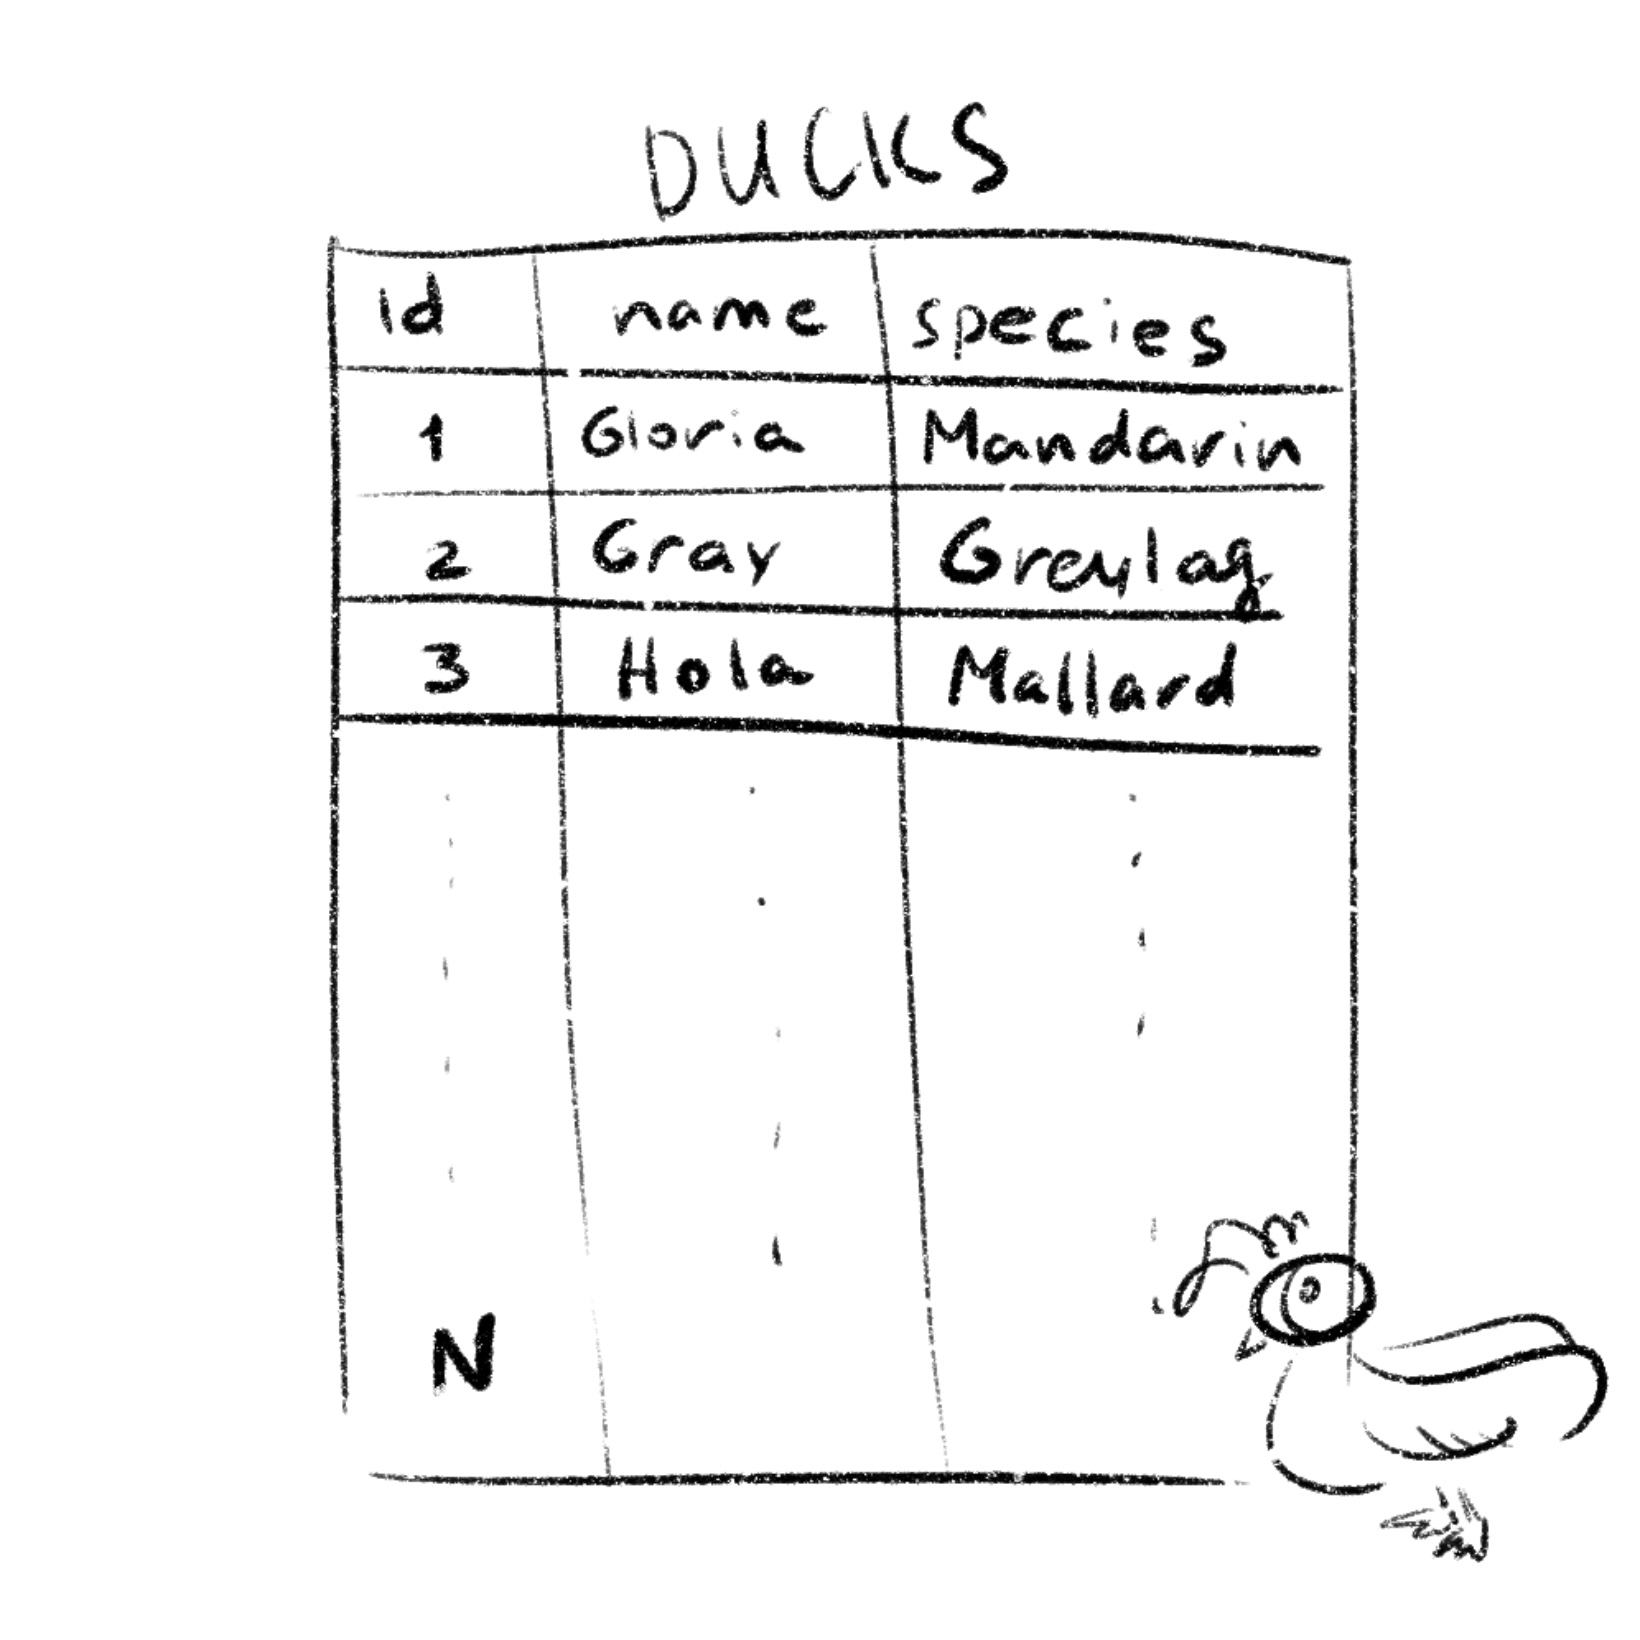 DUCKS
id name species
1 Gloria Mandarin
2 Gray Greylag
3 Hola Mallard
N